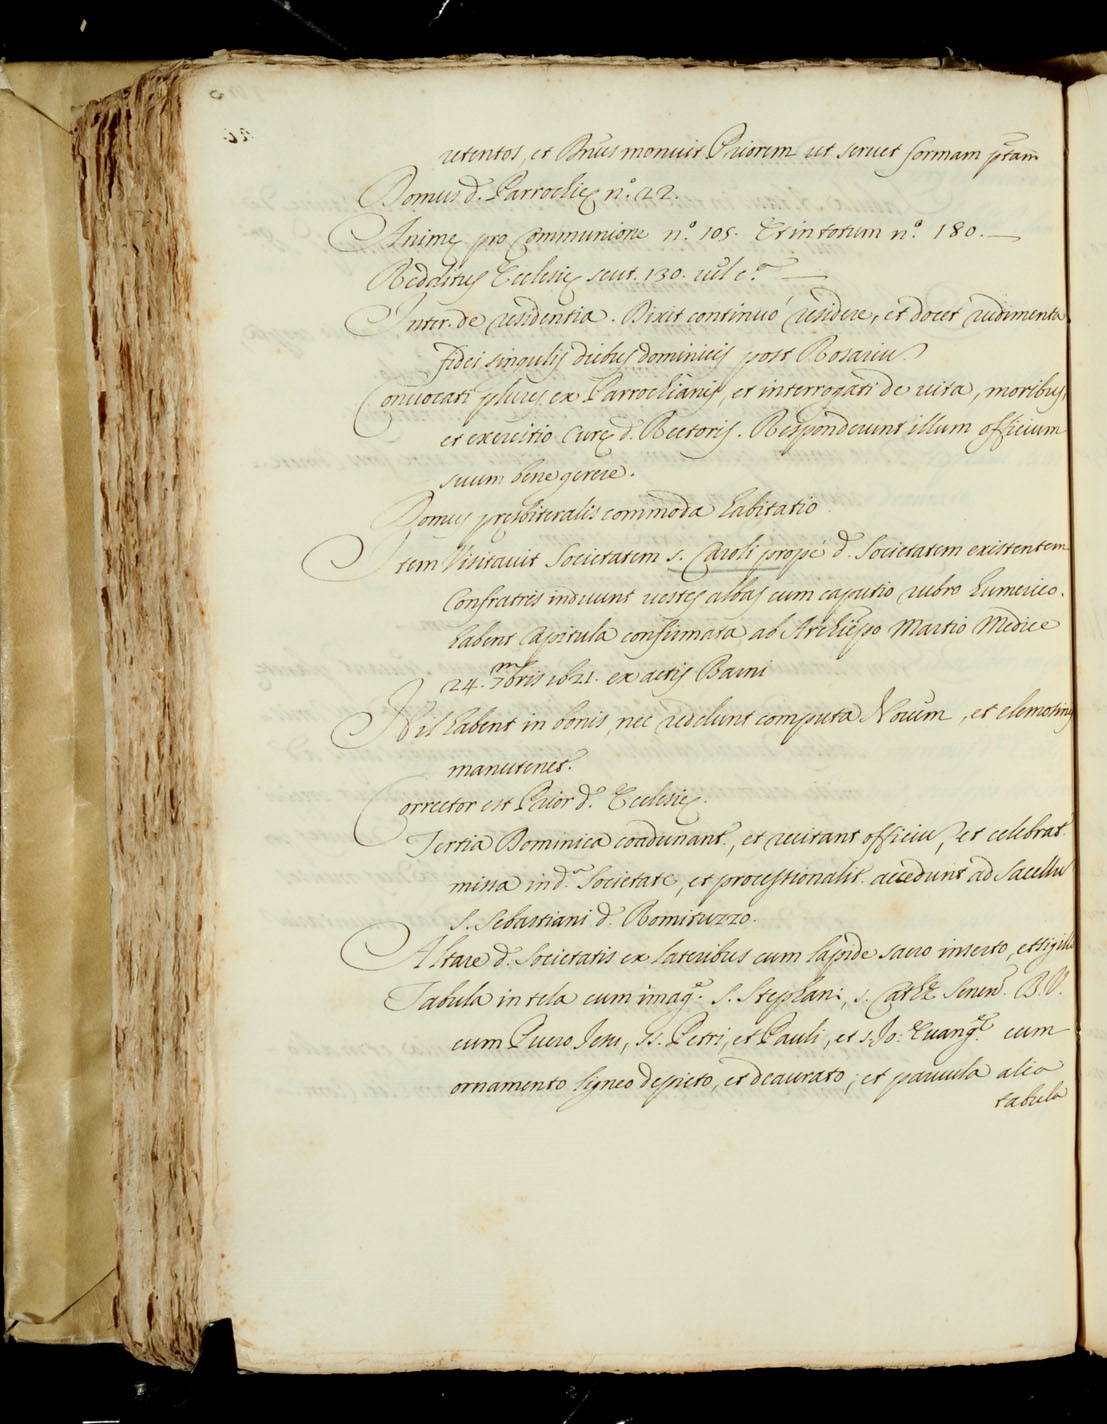 retentos, et Dnus monuit Priorem ut servet formam ptam
Domus d. Parrochię n.º 22.
Animę pro Communione n.º 105. Et in totum n.º 180.
Redditus Ecclesię scut. 130. vel c.ª
Inter. de residentia. Dixit continuó residere, et docet rudimenta
fidei singulis diebus dominicis post Rosariu
Convocati plures ex Parrochianis, et interrogati de vita, moribus,
et exercitio Curę d. Rectoris. Responderunt illum officium
suum bene gerere.
Domus presbiteralis commoda habitatio
Item Visitavit Societatem s. Caroli propé d. Societatem existentem
Confratres induunt vestes albas cum caputio rubro humerico.
habent Capitula confirmata ab Archiepo Martio Medice
24. 7mbris 1621. ex actis Barni
Nil habent in bonis, nec reddunt computa Novum, et elemosinis
manutenet.
Corrector est Prior d.ę Ecclesię.
Tertia Dominica coadunant., et recitant officiu, et celebrat.
missa in d.ª Societate, et processionalit. accedunt ad Sacellu
S. Sebastiani d.º Romituzzo.
Altare d. Societatis ex lateribus cum lapide sacro inserto, et sigillo
Tabula in tela cum imag.e S. Stephani, s. Cathe Senen. B.V.
cum Puero Jesu, ss. Petri, et Pauli, et s. Jo: Evang.e cum
ornamento ligneo depicto, et deaurato; et parvula alia
tabula